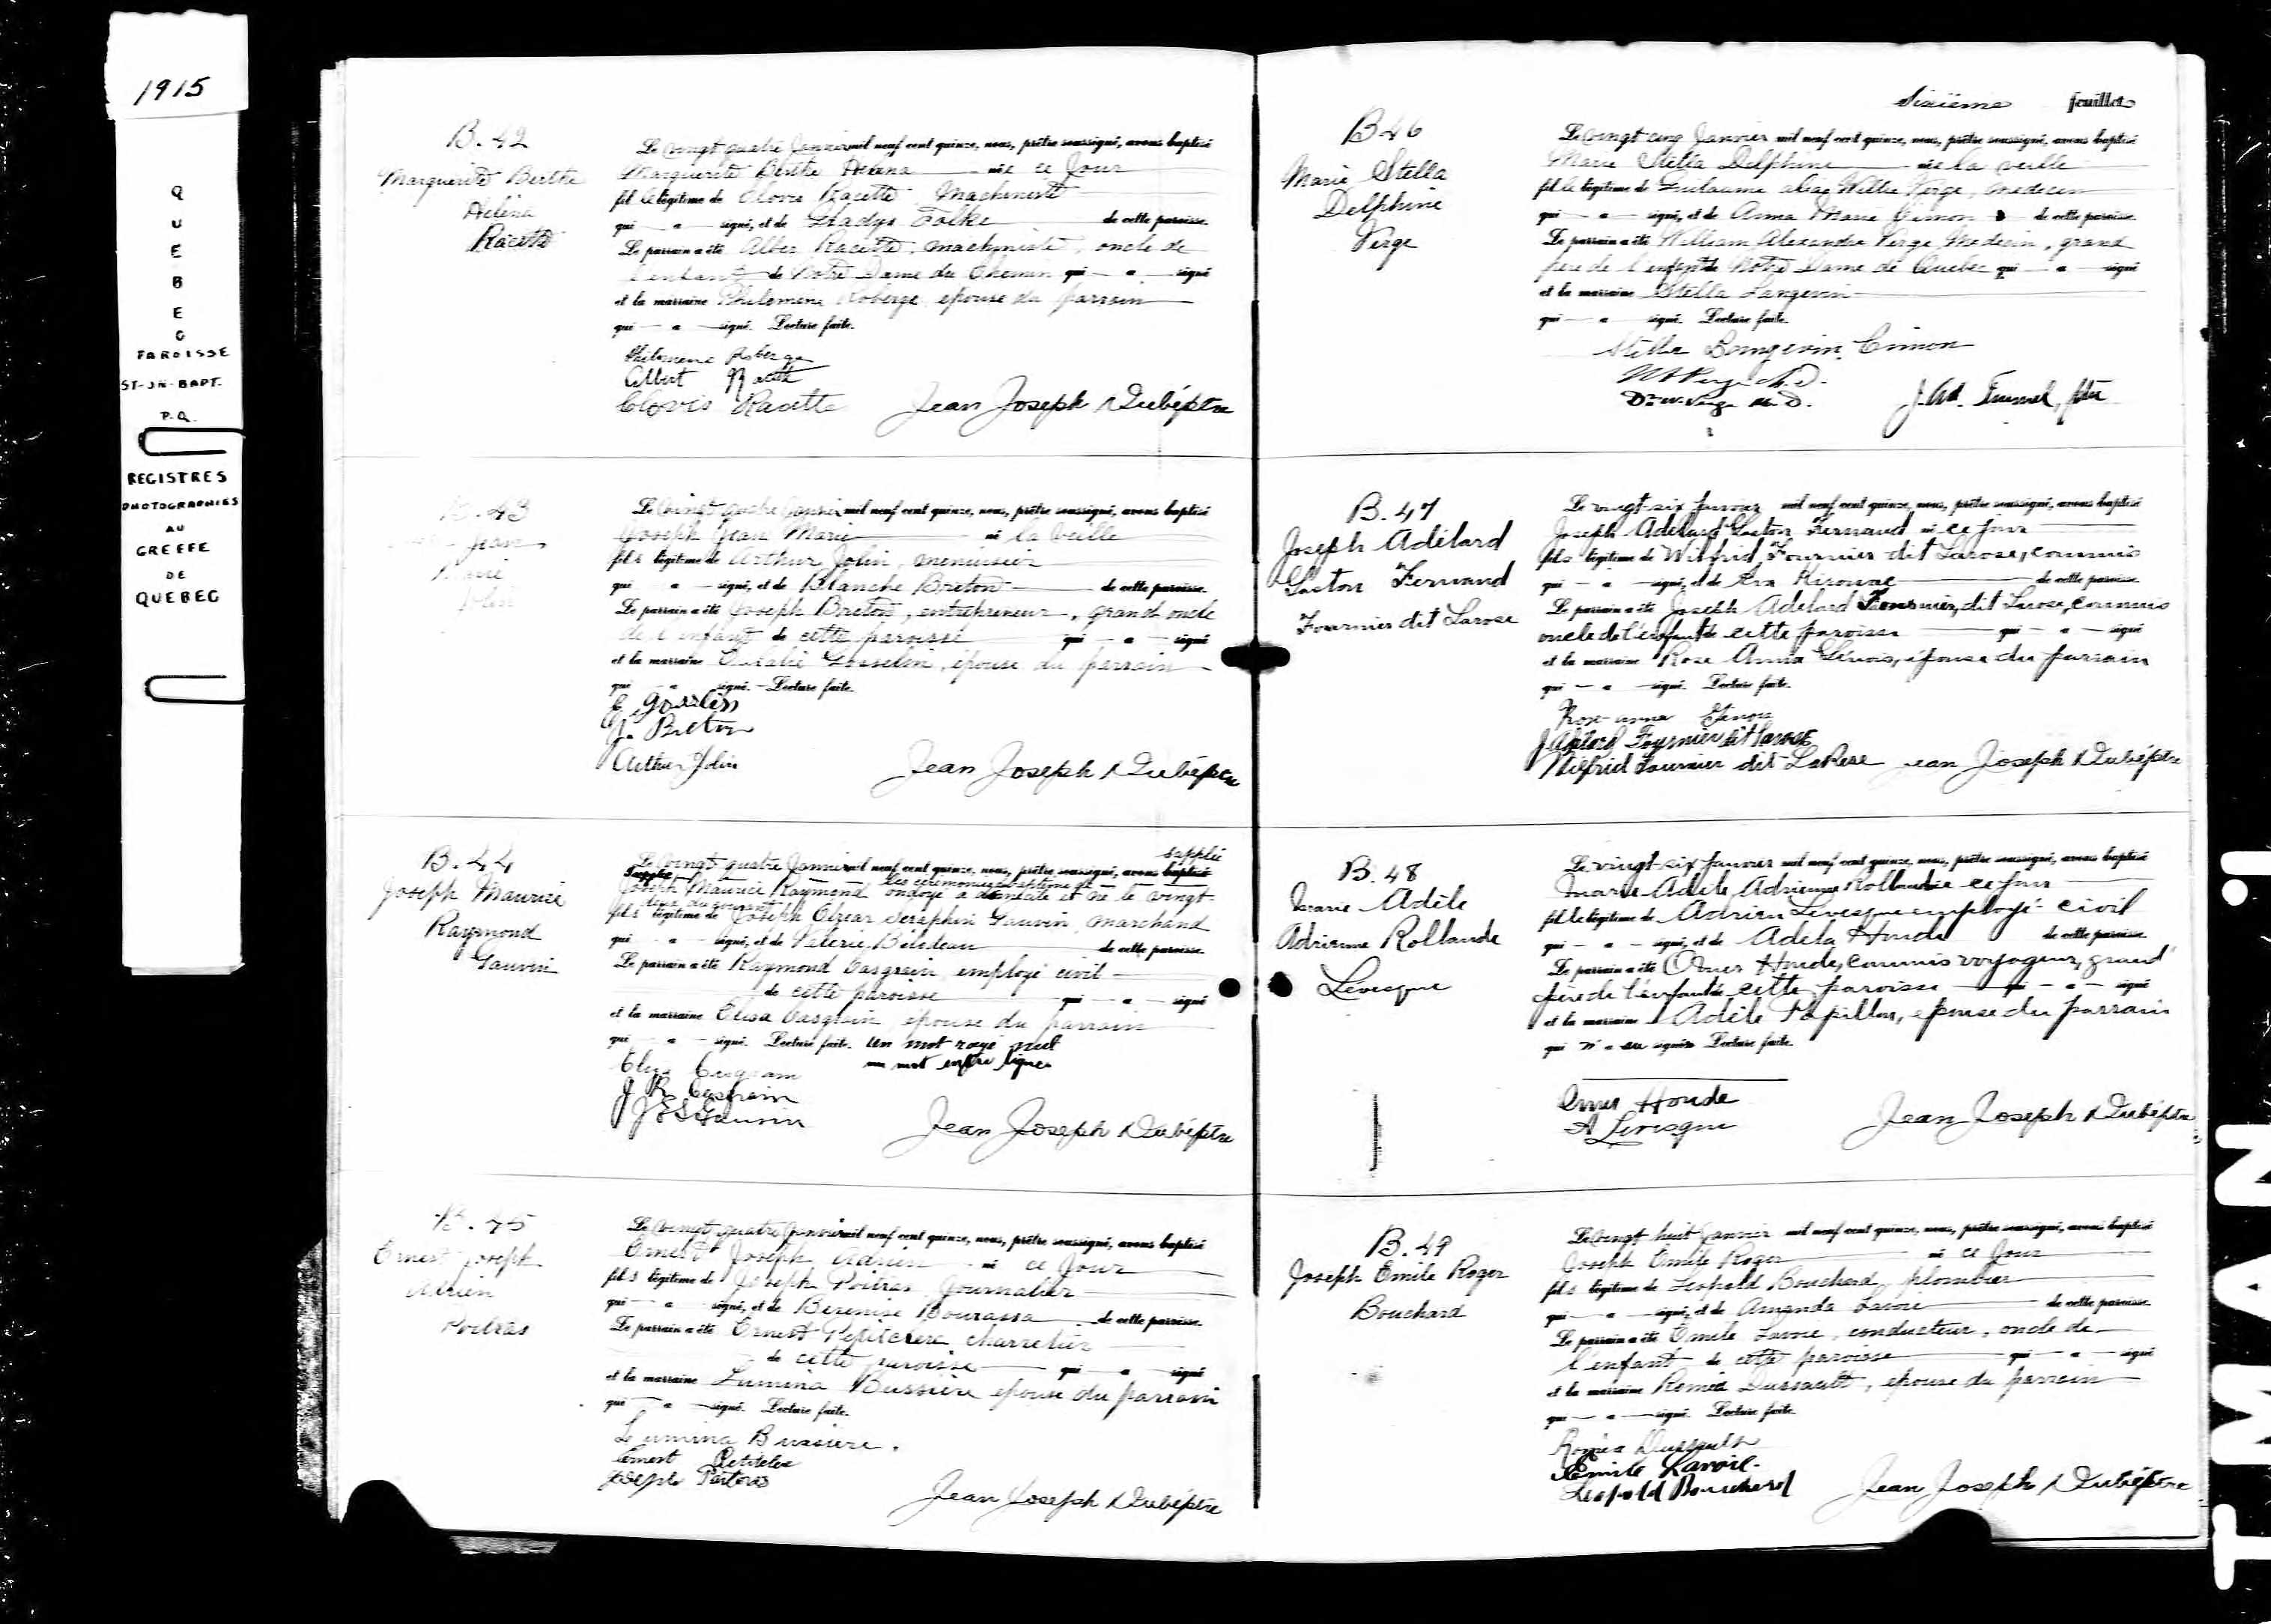 1915
QUEBEC
PAROISSE
ST-JN-BAPT.
P.Q.
REGISTRES
PHOTOGRAPHIES
AU
GREFFE
DE
QUEBEC
B. 42
Marguerite Berthe
Helena
Racette
Le vingt quatre Janvier mil neuf cent quinze, nous, prêtre soussigné, avons baptisé
Marguerite Berthe Helena née ce Jour
fille légitime de Clovis Racette Machiniste
qui a signé, et de Gladys de cette paroisse.
Le parrain a été Alber Racette, machiniste, oncle de
l'enfant de Notre Dame du Chemin qui a signé
et la marraine Philomene Roberge épouse du parrain
qui a signé. Lecture faite.
Philomene Roberge
Albert Racette
Clovis Racette Jean Joseph Dubé ptre
B. 43
Jean
Marie
Jolin
Le vingt quatre Janvier mil neuf cent quinze, nous, prêtre soussigné, avons baptisé
Joseph Jean Marie né la veille
fils légitime de Arthur Jolin, menuisier
qui a signé, et de Blanche Breton de cette paroisse.
Le parrain a été Joseph Breton, entrepreneur, grand oncle
de l'enfant de cette paroisse qui a signé
et la marraine Gosselin, épouse du parrain
qui a signé. Lecture faite.
E. Gosselin
J. Breton
Arthur Jolin Jean Joseph Dubé ptre
B. 44
Joseph Maurice
Raymond
Gauvin
supplée
Le vingt quatre Janvier mil neuf cent quinze, nous, prêtre soussigné, avons baptisé
les cérémonies du baptême à
Joseph Maurice Raymond ondoyé à domicile et né le vingt
deux du courant
fils légitime de Joseph Elzear Seraphin Gauvin, marchand
qui a signé, et de Valerie Bilodeau de cette paroisse.
Le parrain a été Raymond Casgrain employé civil
de cette paroisse qui a signé
et la marraine Elisa Casgrain épouse du parrain
qui a signé. Lecture faite. Un mot rayé nul
un mot entre lignes
Casgrain
J R Casgrain
J E S Gauvin Jean Joseph Dubé ptre
B. 45
Ernest Joseph
Adrien
Poitras
Le vingt quatre Janvier mil neuf cent quinze, nous, prêtre soussigné, avons baptisé
Ernest Joseph Adrien né ce Jour
fils légitime de Joseph Poitras Journalier
qui a signé, et de Berenise Bourassa de cette paroisse.
Le parrain a été Ernest Petitclerc charretier
de cette paroisse qui a signé
et la marraine Lumina Bussière épouse du parrain
qui a signé. Lecture faite.
Lumina Bussiere.
Ernest Petitclerc
Joseph Poitras
Jean Joseph Dubé ptre
Sixième feuillet
B 46
Marie Stella
Delphine
Verge
Le vingt cinq Janvier mil neuf cent quinze, nous, prêtre soussigné, avons baptisé
Marie Stella Delphine née la veille
fille légitime de Guilaume alias Willie Verge, medecin
qui a signé, et de Anna Marie Cimon de cette paroisse.
Le parrain a été William Alexandre Verge Medecin, grand
père de l'enfant de Notre Dame de Quebec qui a signé
et la marraine Stella Langevin
qui a signé. Lecture faite.
Stella Langevin Cimon
Verge M.D.
Dr W. Verge M.D. J. Ad. ptre
B. 47
Joseph Adélard
Gaston Fernand
Fournier dit Larose
Le vingt-six Janvier mil neuf cent quinze, nous, prêtre soussigné, avons baptisé
Joseph Adélard Gaston Fernand né ce jour
fils légitime de Wilfrid Fournier dit Larose, commis
qui a signé, et de Eva Kirouac de cette paroisse.
Le parrain a été Joseph Adélard Fournier, dit Larose, commis
oncle de l'enfant de cette paroisse qui a signé
et la marraine Rose Anna Génois, épouse du parrain
qui a signé. Lecture faite.
Rose-anna Genois
J. Adélard Fournier dit Larose
Wilfrid Fournier dit LaRose Jean Joseph Dubé ptre
B. 48
Marie Adèle
Adrienne Rollande
Lévesque
Le vingt-six Janvier mil neuf cent quinze, nous, prêtre soussigné, avons baptisé
Marie Adèle Adrienne Rollande née ce jour
fille légitime de Adrien Levesque employé civil
qui a signé, et de Adela Houde de cette paroisse.
Le parrain a été Omer Houde, commis voyageur, grand
père de l'enfant de cette paroisse qui a signé
et la marraine Adèle Papillon, épouse du parrain
qui n'a su signer Lecture faite.
Omer Houde
A Lévesque Jean Joseph Dubé ptre
B. 49
Joseph Emile Roger
Bouchard
Le vingt huit Janvier mil neuf cent quinze, nous, prêtre soussigné, avons baptisé
Joseph Emile Roger né ce Jour
fils légitime de Leopold Bouchard, plombier
qui a signé, et de Amanda Lavoie de cette paroisse.
Le parrain a été Emile Lavoie, conducteur, oncle de
l'enfant de cette paroisse qui a signé
et la marraine Roméa Dussault, épouse du parrain
qui a signé. Lecture faite.
Roméa Dussault
Emile Lavoie.
Leopold Bouchard Jean Joseph Dubé ptre